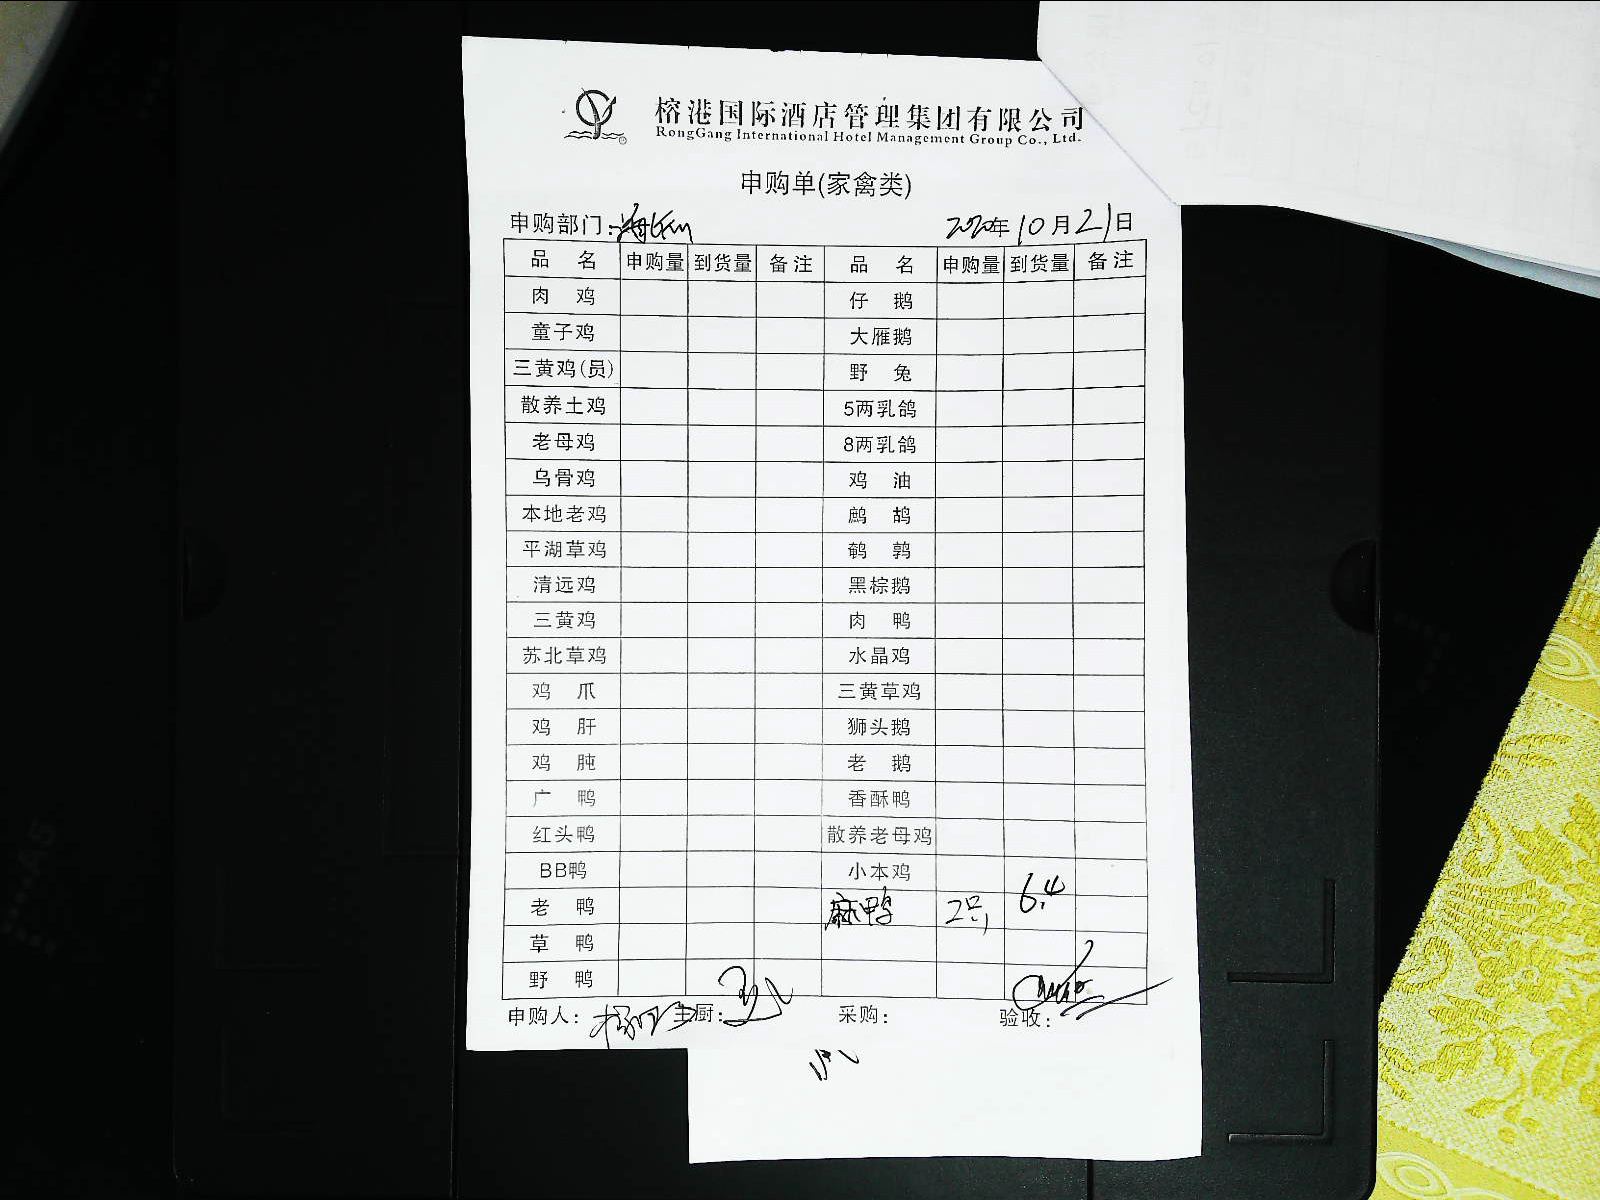 榕港国际酒店管理集团有限公司
RongGang International Hotel Management Group Co., Ltd.
申购单(家禽类)
申购部门: 2020年10月21日
品名 申购量 到货量 备注 品名 申购量 到货量 备注
肉鸡 仔鹅
童子鸡 大雁鹅
三黄鸡(员) 野兔
散养土鸡 5两乳鸽
老母鸡 8两乳鸽
乌骨鸡 鸡油
本地老鸡 鹧鸪
平湖草鸡 鹌鹑
清远鸡 黑棕鹅
三黄鸡 肉鸭
苏北草鸡 水晶鸡
鸡爪 三黄草鸡
鸡肝 狮头鹅
鸡肫 老鹅
广鸭 香酥鸭
红头鸭 散养老母鸡
BB鸭 小本鸡
老鸭 麻鸭 2只 6.4
草鸭
野鸭
申购人: 主厨: 采购: 验收: